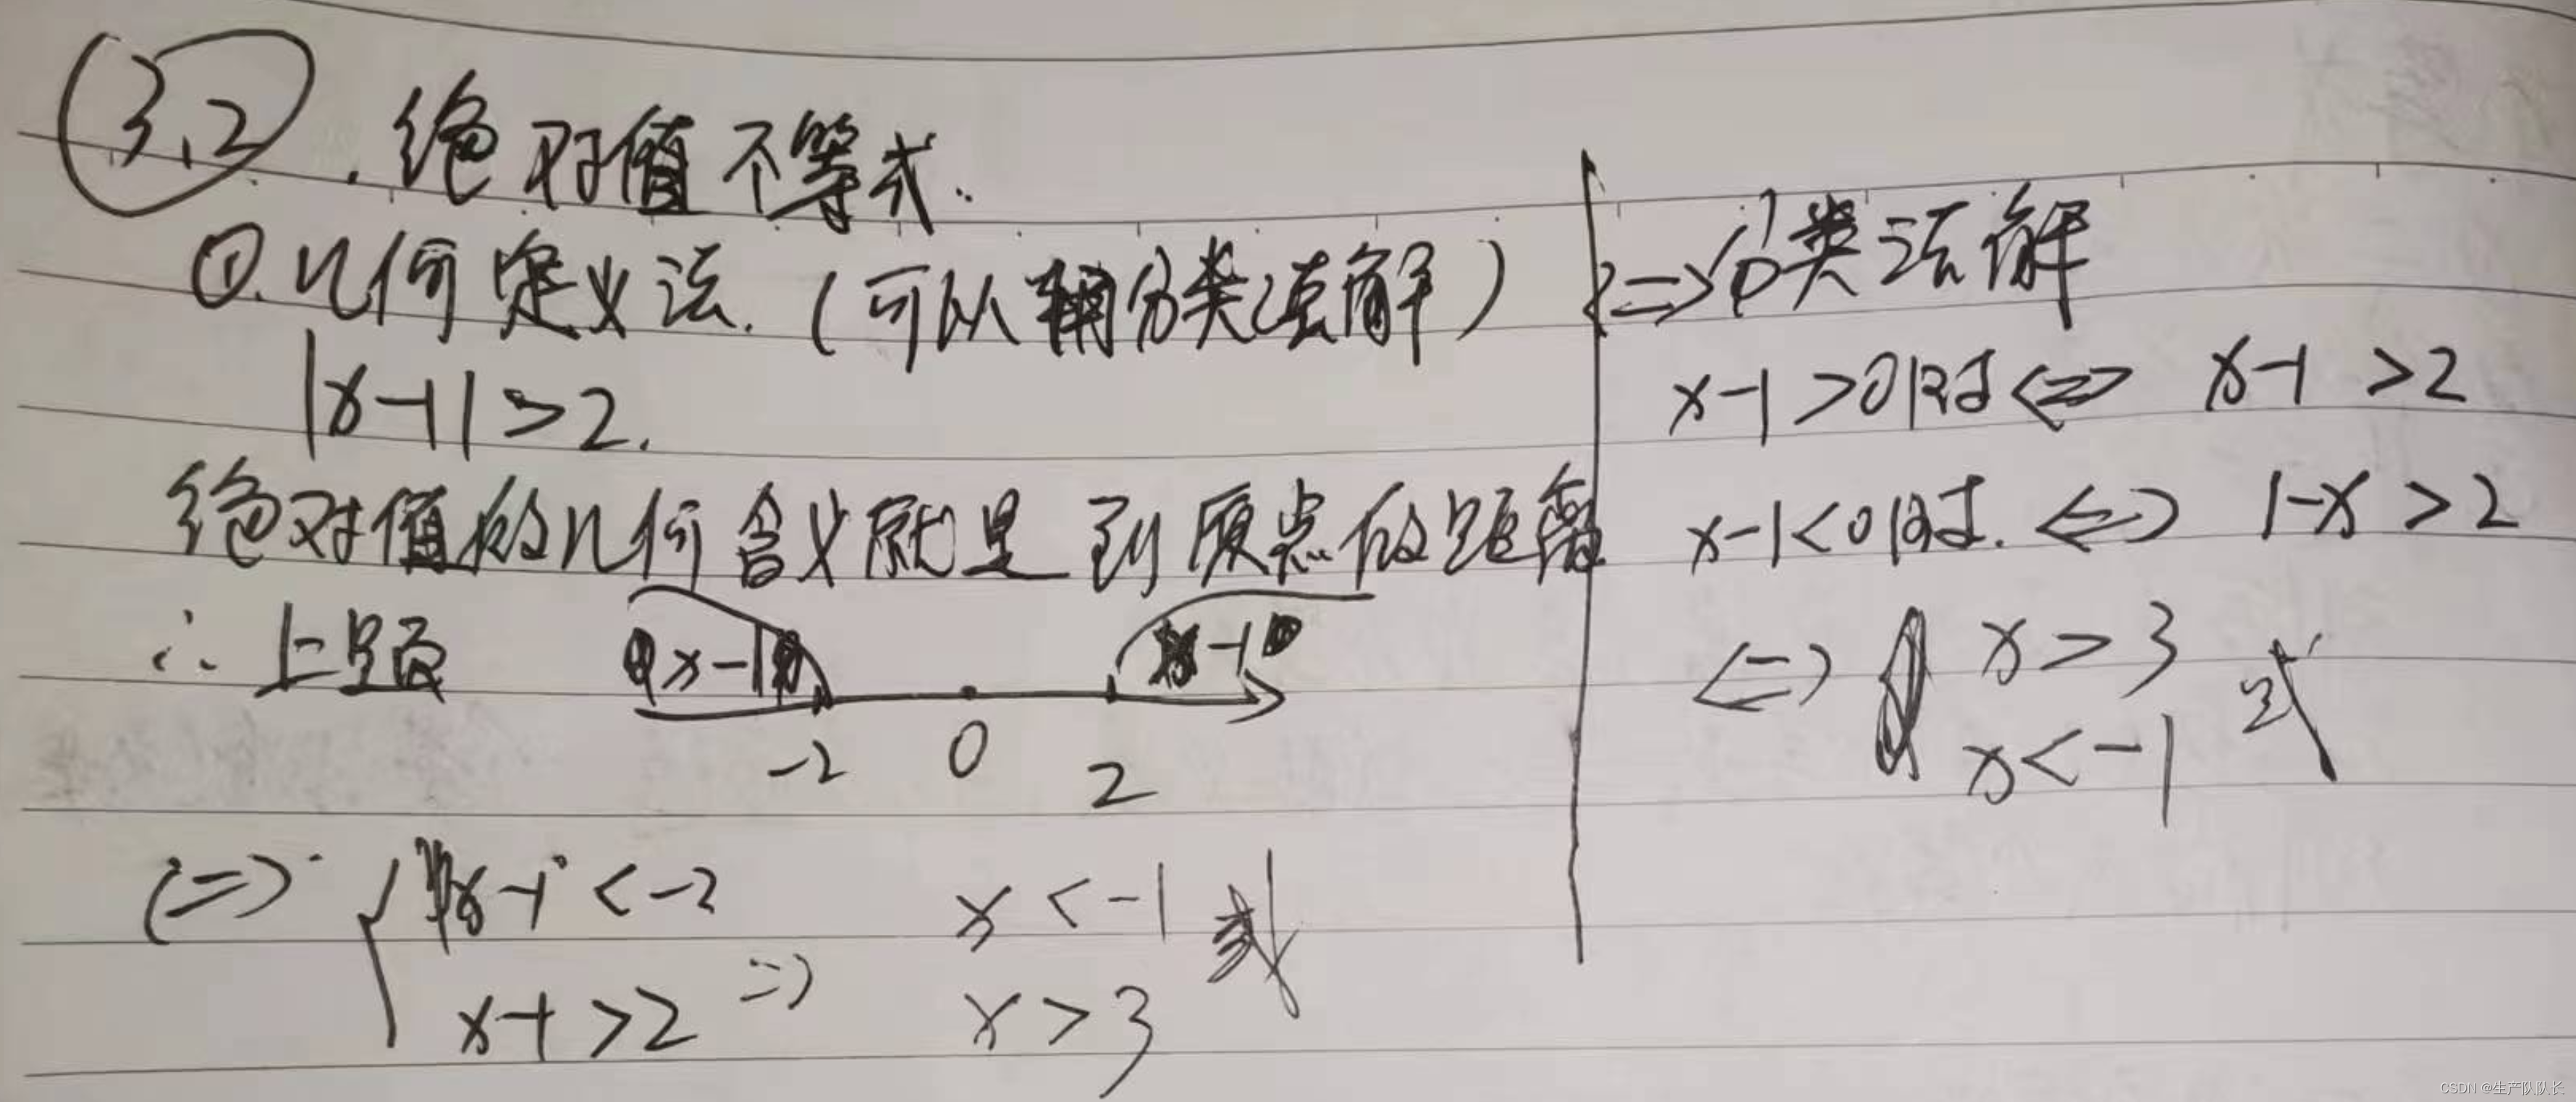 3.2. 绝对值不等式.
①.几何定义法.(可以用分类法解)
|x-1|>2.
绝对值的几何含义就是到原点的距离
∴上题 x-1 x-1
-2 0 2
<=> { x-1 < -2
x-1 > 2 => x < -1 或
x > 3
<=>分类法解
x-1>0时<=> x-1 >2
x-1<0时. <=> 1-x >2
<=> x > 3 或
x < -1
CSDN @生产队队长